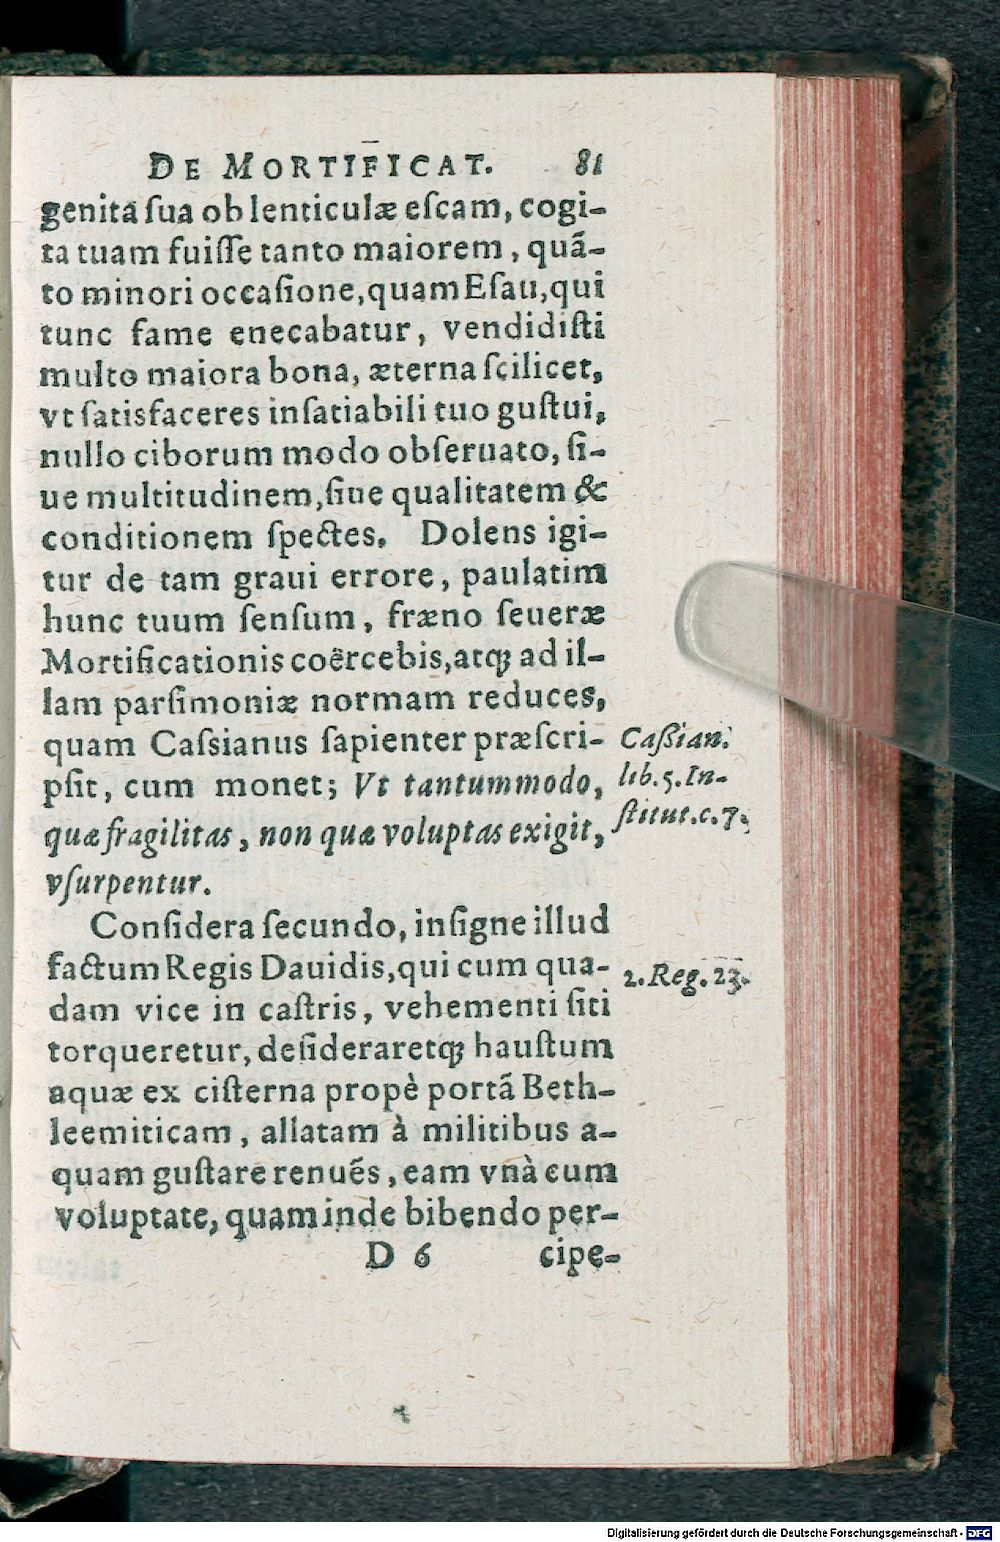 DE MORTIFICAT. 81
genitā ſua ob lenticulæ eſcam, cogi-
ta tuam fuiſſe tanto maiorem, quã-
to minori occaſione, quam Eſau, qui
tunc fame enecabatur, vendidiſti
multo maiora bona, æterna ſcilicet,
vt ſatisfaceres inſatiabili tuo guſtui,
nullo ciborum modo obſeruato, ſi-
ue multitudinem, ſiue qualitatem &
conditionem ſpectes. Dolens igi-
tur de tam graui errore, paulatim
hunc tuum ſenſum, fræno ſeueræ
Mortificationis coërcebis, atq; ad il-
lam parſimoniæ normam reduces,
quam Caſsianus ſapienter præſcri-
pſit, cum monet; Vt tantummodo,
quæ fragilitas, non quæ voluptas exigit,
vſurpentur.
Caßian.
lib. 5. In-
ſtitut. c. 7.
Conſidera ſecundo, inſigne illud
factum Regis Dauidis, qui cum qua-
dam vice in caſtris, vehementi ſiti
torqueretur, deſideraretq; hauſtum
aquæ ex ciſterna propè portã Beth-
leemiticam, allatam à militibus a-
quam guſtare renuẽs, eam vnà cum
voluptate, quam inde bibendo per-
2. Reg. 23.
D 6 cipe-
Digitalisierung gefördert durch die Deutsche Forschungsgemeinschaft - DFG